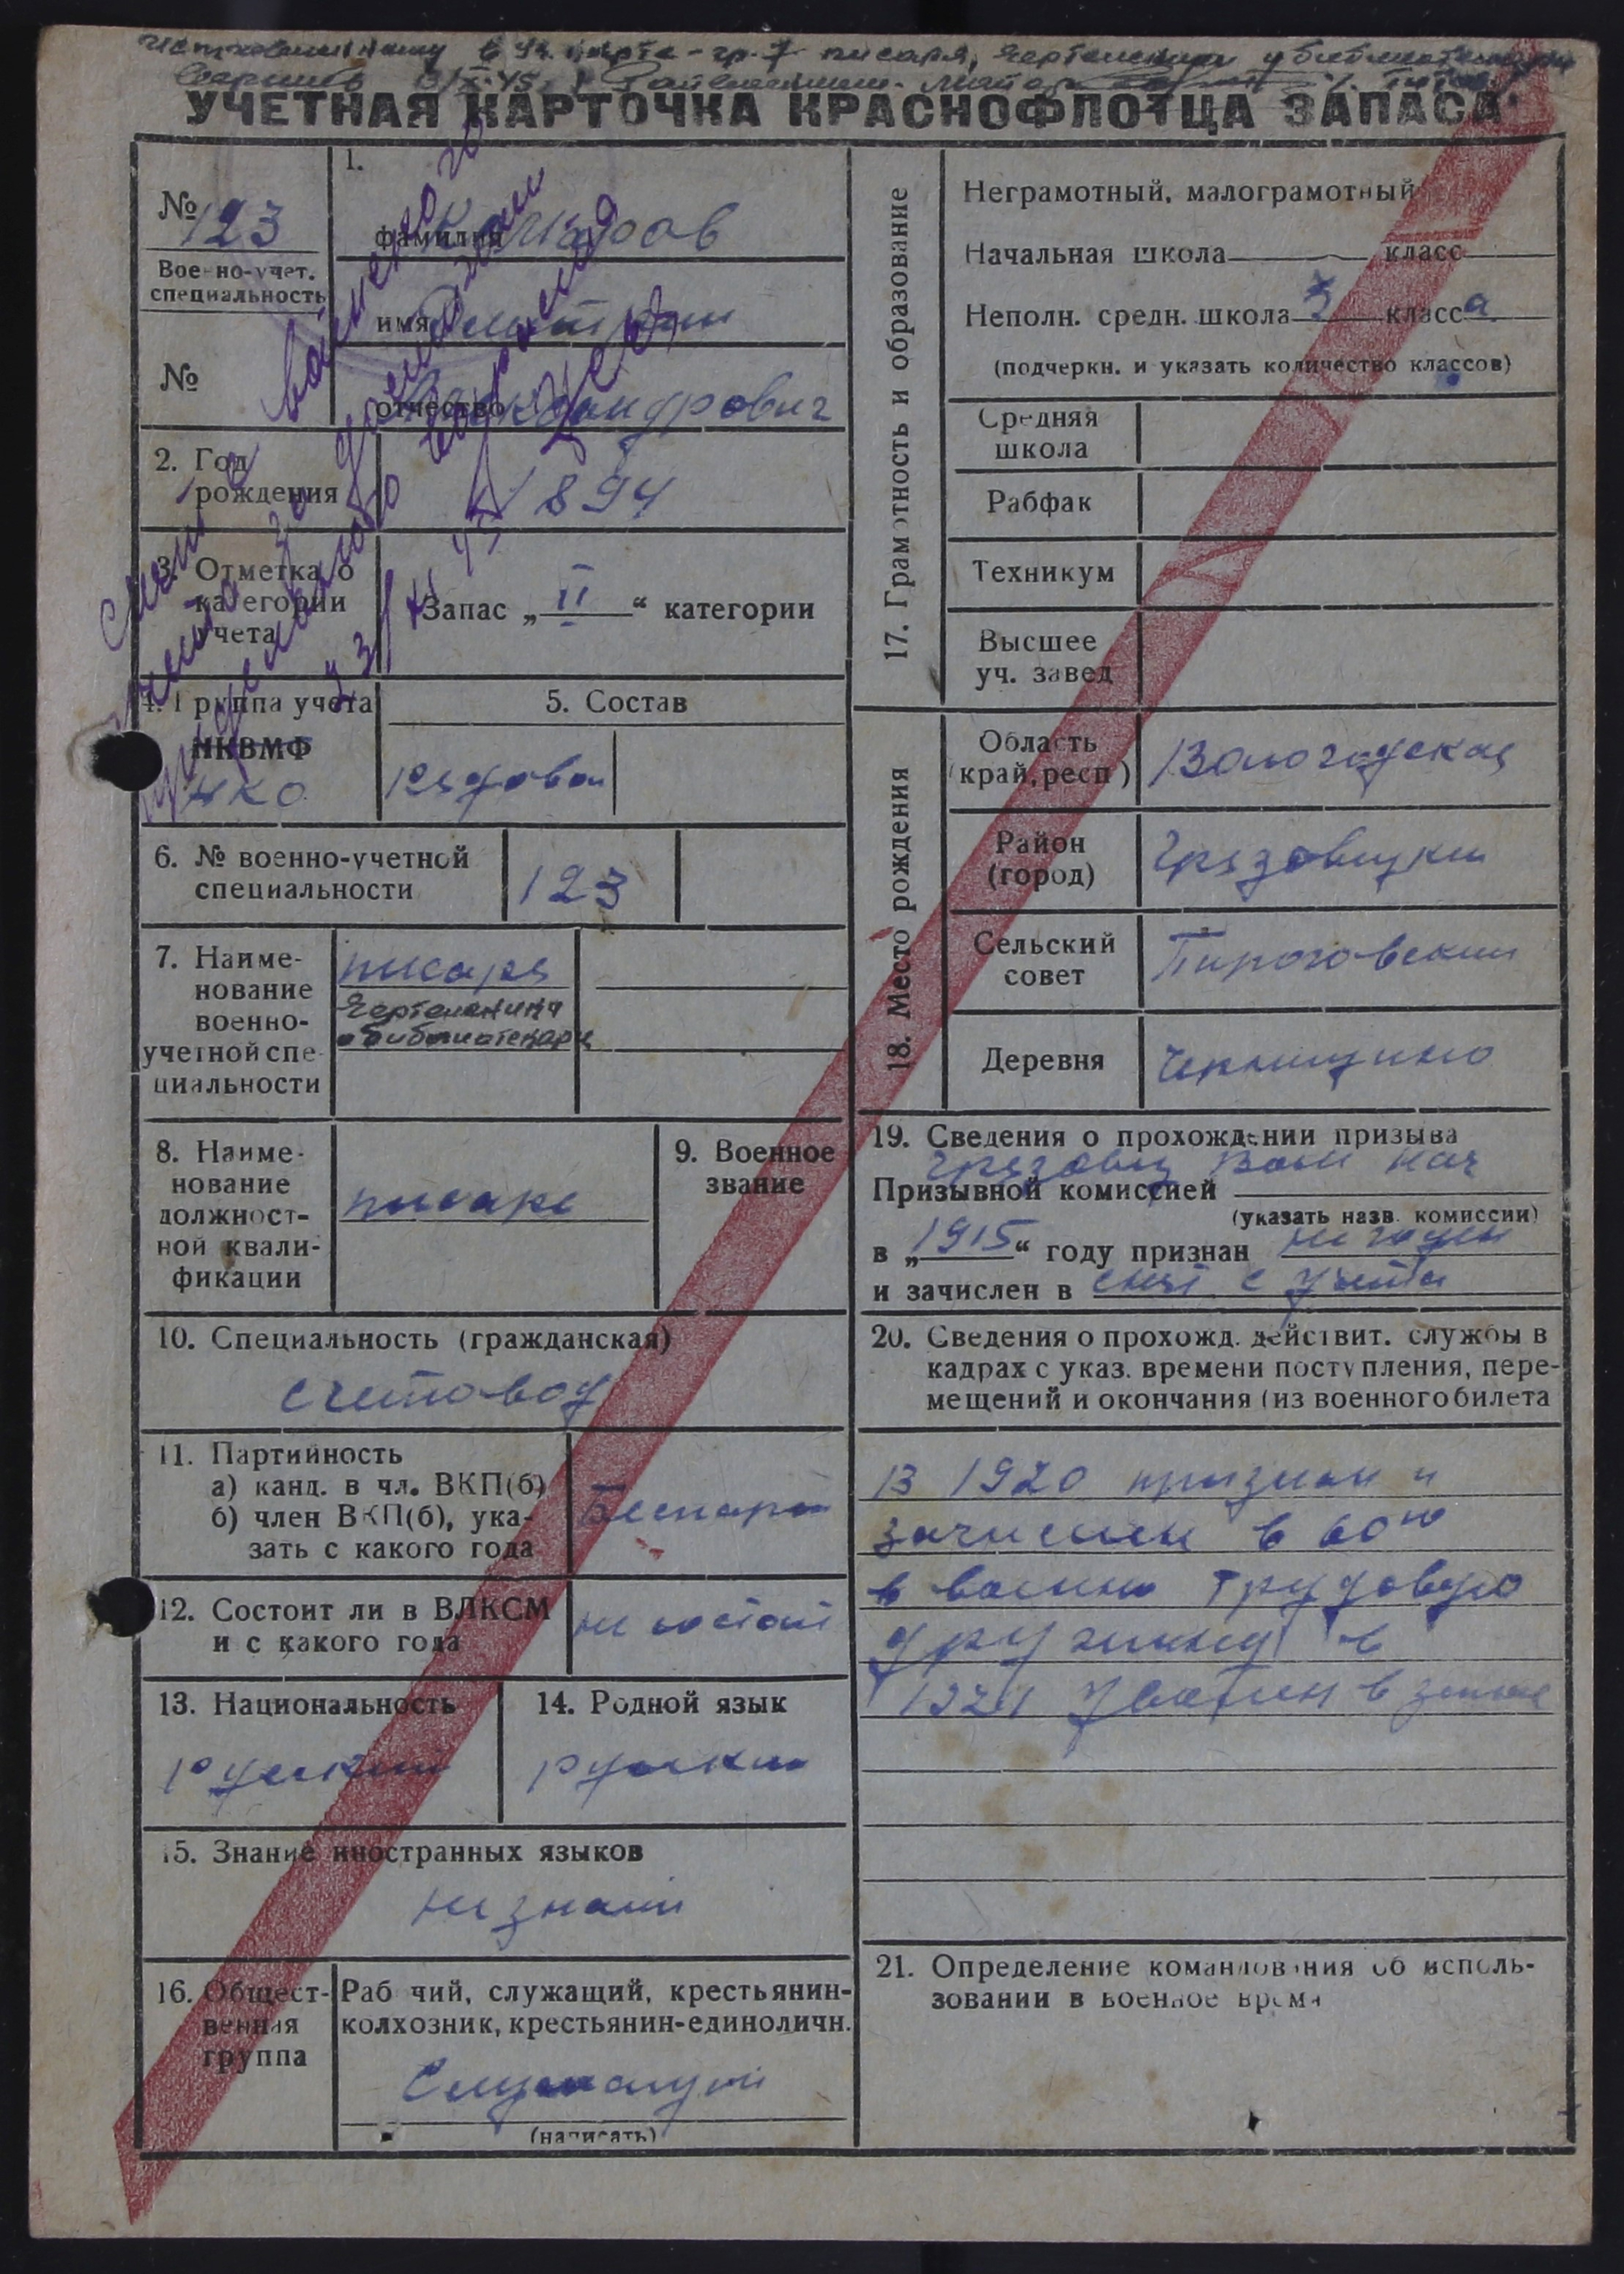 УЧЕТНАЯ КАРТОЧКА КРАСНОФЛОТЦА ЗАПАСА
№ 123
Военно-учет. специальность
№
1.
фамилия
имя Дмитрий
отчество Александрович
2. Год рождения 1894
3. Отметка о категории учета
Запас „ II “ категории
4. Группа учета
НКВМФ
НКО
5. Состав
Рядовой
6. № военно-учетной специальности 123
7. Наименование военно-учетной специальности
писаря
чертежники
библиотекари
8. Наименование должностной квалификации
писарь
9. Военное звание
10. Специальность (гражданская)
счетовод
11. Партийность
а) канд. в чл. ВКП(б)
б) член ВКП(б), указать с какого года
Беспарт
12. Состоит ли в ВЛКСМ и с какого года
не состоит
13. Национальность
русский
14. Родной язык
русский
15. Знание иностранных языков
не знает
16. Общественная группа
Рабочий, служащий, крестьянин-
колхозник, крестьянин-единоличн.
Служащий
(написать)
17. Грамотность и образование
Неграмотный, малограмотный
Начальная школа класс
Неполн. средн. школа 3 класса
(подчеркн. и указать количество классов)
Средняя школа
Рабфак
Техникум
Высшее уч. завед
18. Место рождения
Область (край, респ) Вологодская
Район (город) Грязовецкий
Сельский совет Пироговский
Деревня
19. Сведения о прохождении призыва
Грязовец Воен нач
Призывной комиссией
(указать назв. комиссии)
в „1915“ году признан не годен
и зачислен в снят с учета
20. Сведения о прохожд. действит. службы в
кадрах с указ. времени поступления, пере-
мещений и окончания (из военного билета
В 1920 признан и
зачислен в 60ю
в военно трудовую
дружину в
1921 уволен в запас
21. Определение командования об исполь-
зовании в военное время